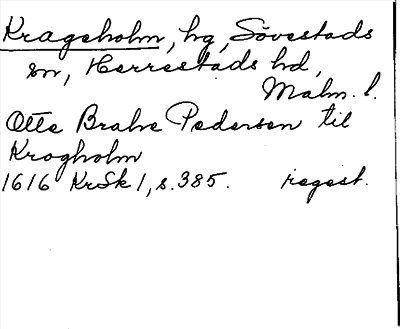 Krageholm, hg, Sövestads
sn, Herrestads hd,
Malm. l.
Otte Brahe Pedersen til
Krogholm
1616 KrSk 1, s. 385. regest.